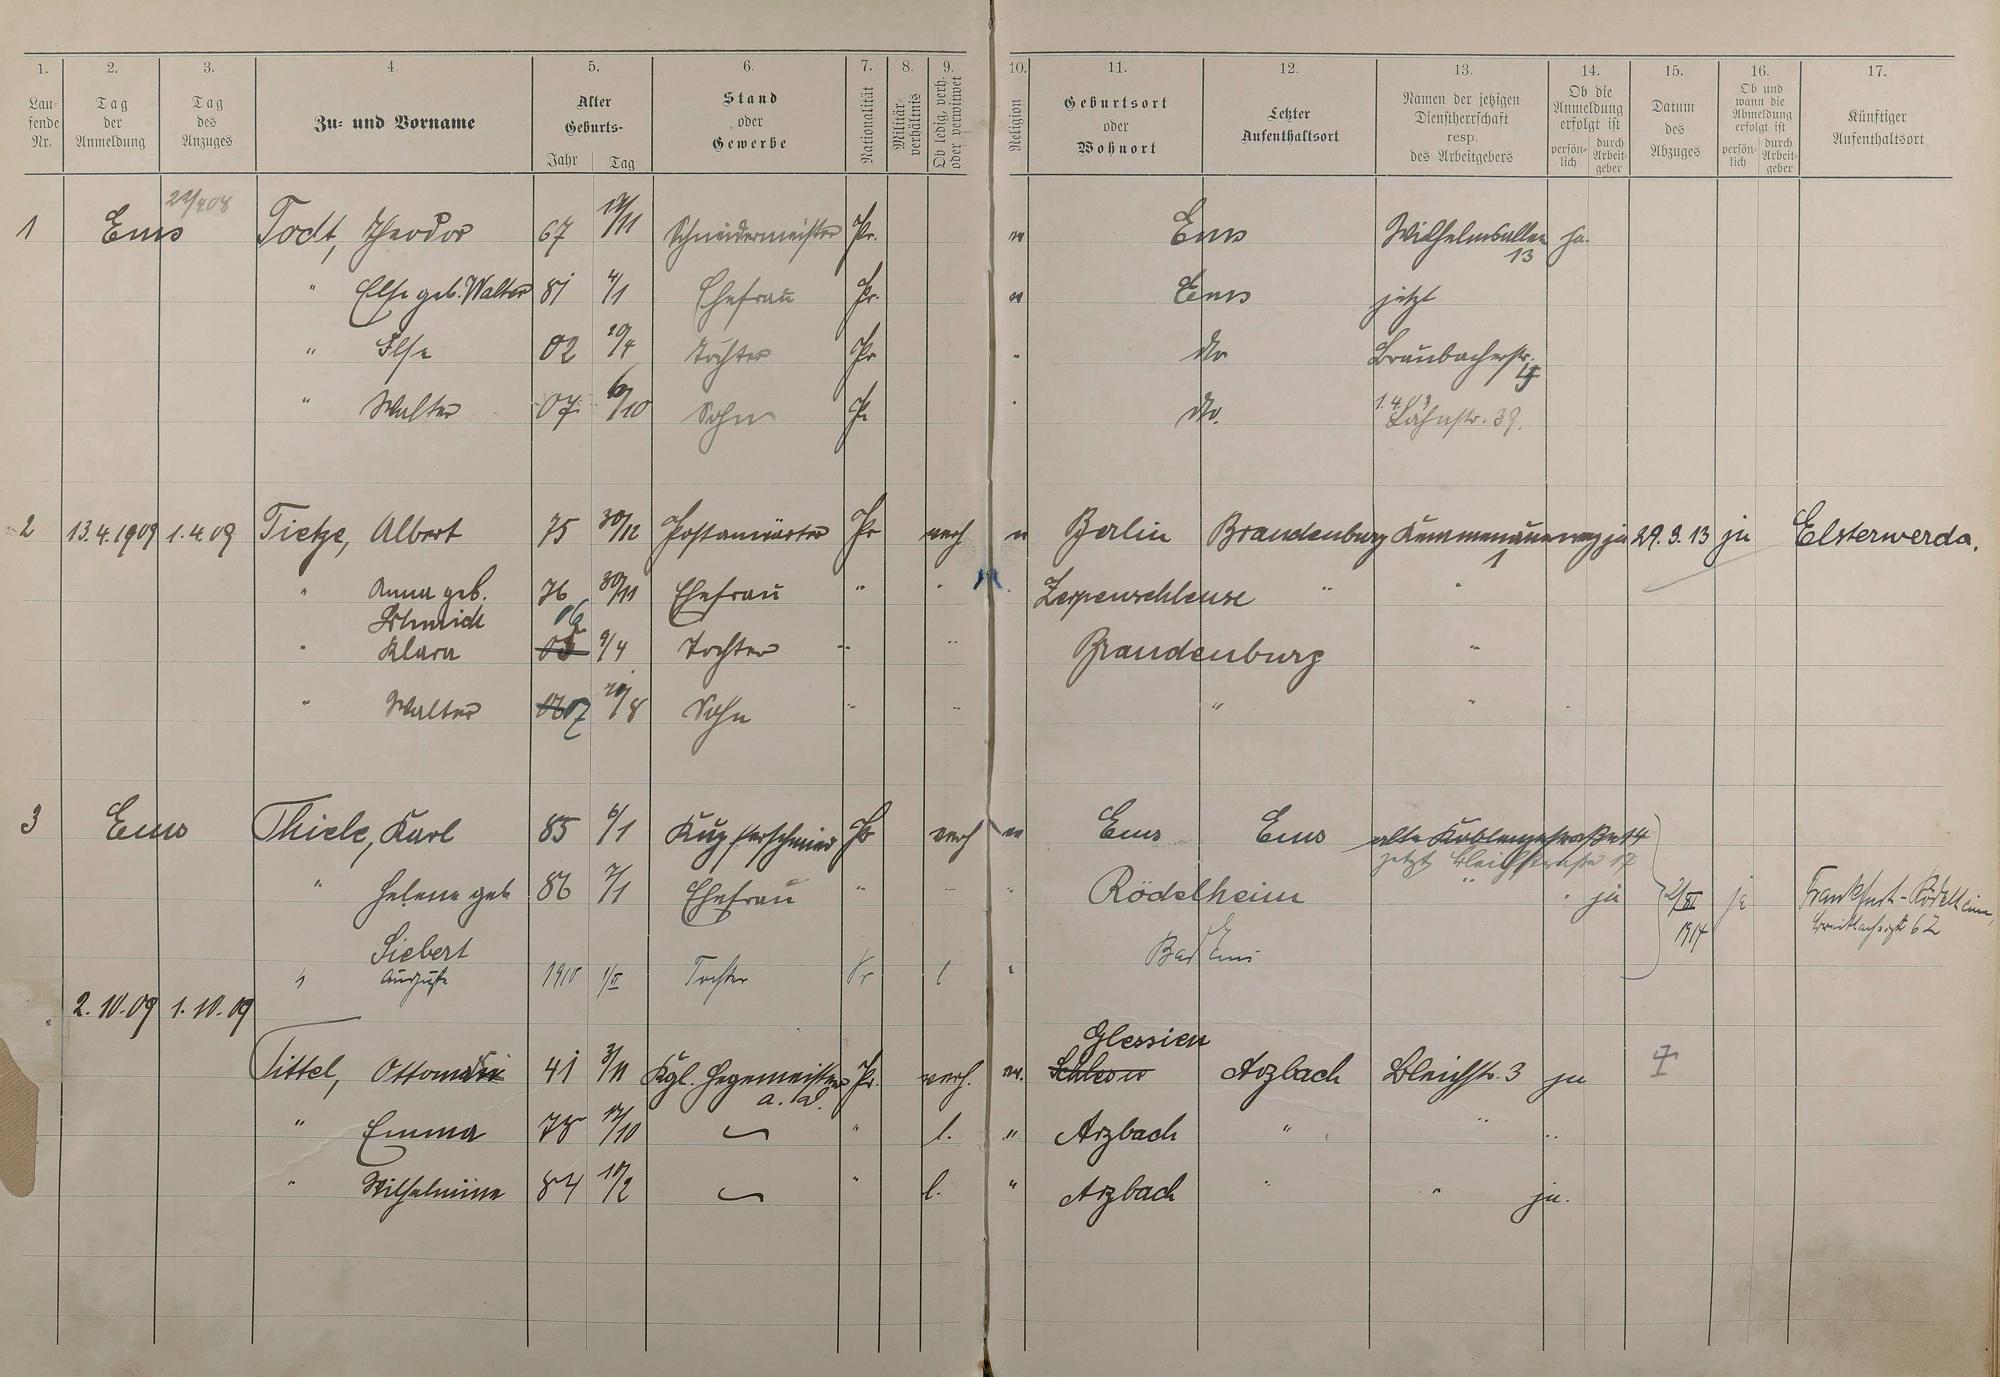 1. 2. 3. 4. 5. 6. 7. 8. 9. 10. 11. 12. 13. 14. 15. 16. 17.
Lau-
fende
Nr.
Tag
der
Anmeldung
Tag
des
Anzuges
Zu- und Vorname
Alter
Geburts-
Jahr Tag
Stand
oder
Gewerbe
Nationalität
Militär-
verhältnis
Ob ledig, verh.
oder verwitwet
Religion
Geburtsort
oder
Wohnort
Letzter
Aufenthaltsort
Namen der jetzigen
Dienstherrschaft
resp.
des Arbeitgebers
Ob die
Anmeldung
erfolgt ist
persön-
lich
durch
Arbeit-
geber
Datum
des
Abzuges
Ob und
wann die
Abmeldung
erfolgt ist
persön-
lich
durch
Arbeit-
geber
Künftiger
Aufenthaltsort
1 Ems Todt, Theodor 67 Schneidermeister Pr. Ems Wilhelmsallee ja.
13
" Else geb. Walter 81 4/1 Ehefrau Pr. Ems jetzt
" Else 02 Tochter Pr " do Braubacherstr.
" Walter 07 6/10 Sohn Pr " do. 
Lahnstr. 39.
2 13.4.1909 1.4.09 Tietze, Albert 75 30/12 Postanwärter Pr verh Berlin Brandenburg Kemmenauerweg ja 29.9.13 ja Elsterwerda.
1
" Anna geb. 76 30/11 Ehefrau " " Zerpenschleuse " "
Schmidt 06
" Klara 05 9/4 Tochter " " Brandenburg "
" Walter 07 Sohn " " " "
3 Ems Thiele, Karl 85 6/1 Kupferschmied Pr verh Ems Ems alte Koblenzestraße 14
jetzt Bleichstraße 17
" Helene geb 86 7/1 Ehefrau " " " Rödelheim " " ja 2/III 1914 ja Frankfurt-Rödelheim,
Siebert Bad Ems
" Auguste 1910 1/II Tochter Pr l "
2.10.09 1.10.09
Glessien
Tittel, Ottomar 41 3/11 Kgl. Hegemeister Pr. verh. ev. Arzbach Bleichstr. 3 ja
a. D.
" Emma 78 " l. " Arzbach " " "
" Wilhelmine 84 " l. " Arzbach " " ja.